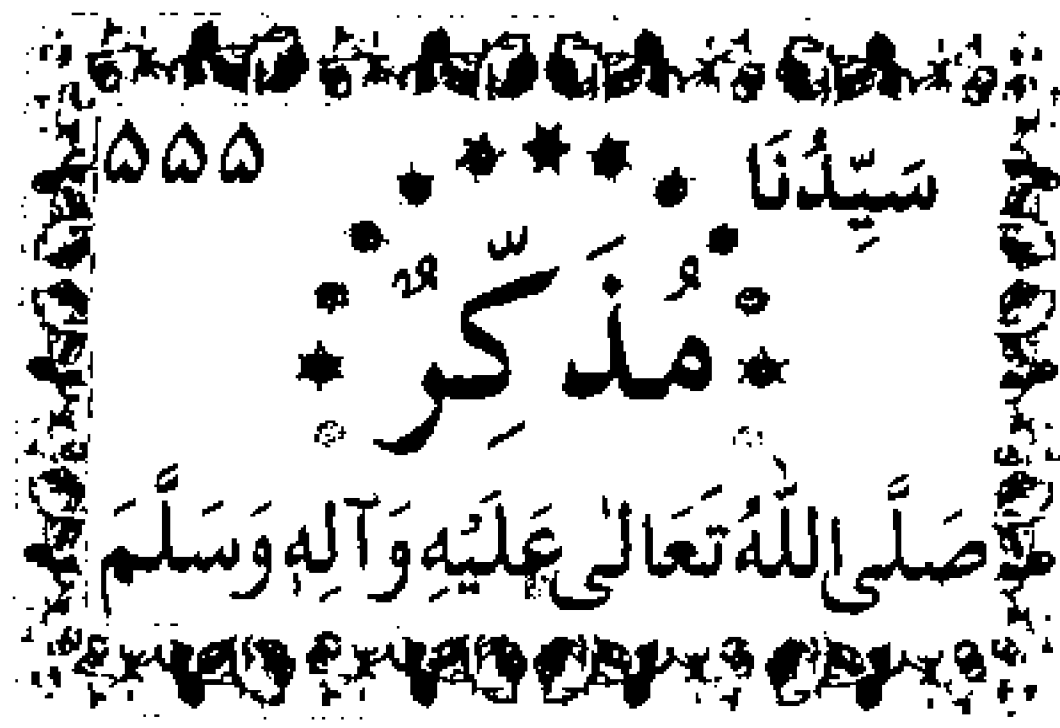 سَيِّدُنَا ۵۵۵
مُذَكِّرٌ
صَلَّى اللّٰهُ تَعَالٰى عَلَيْهِ وَآلِهٖ وَسَلَّمَ